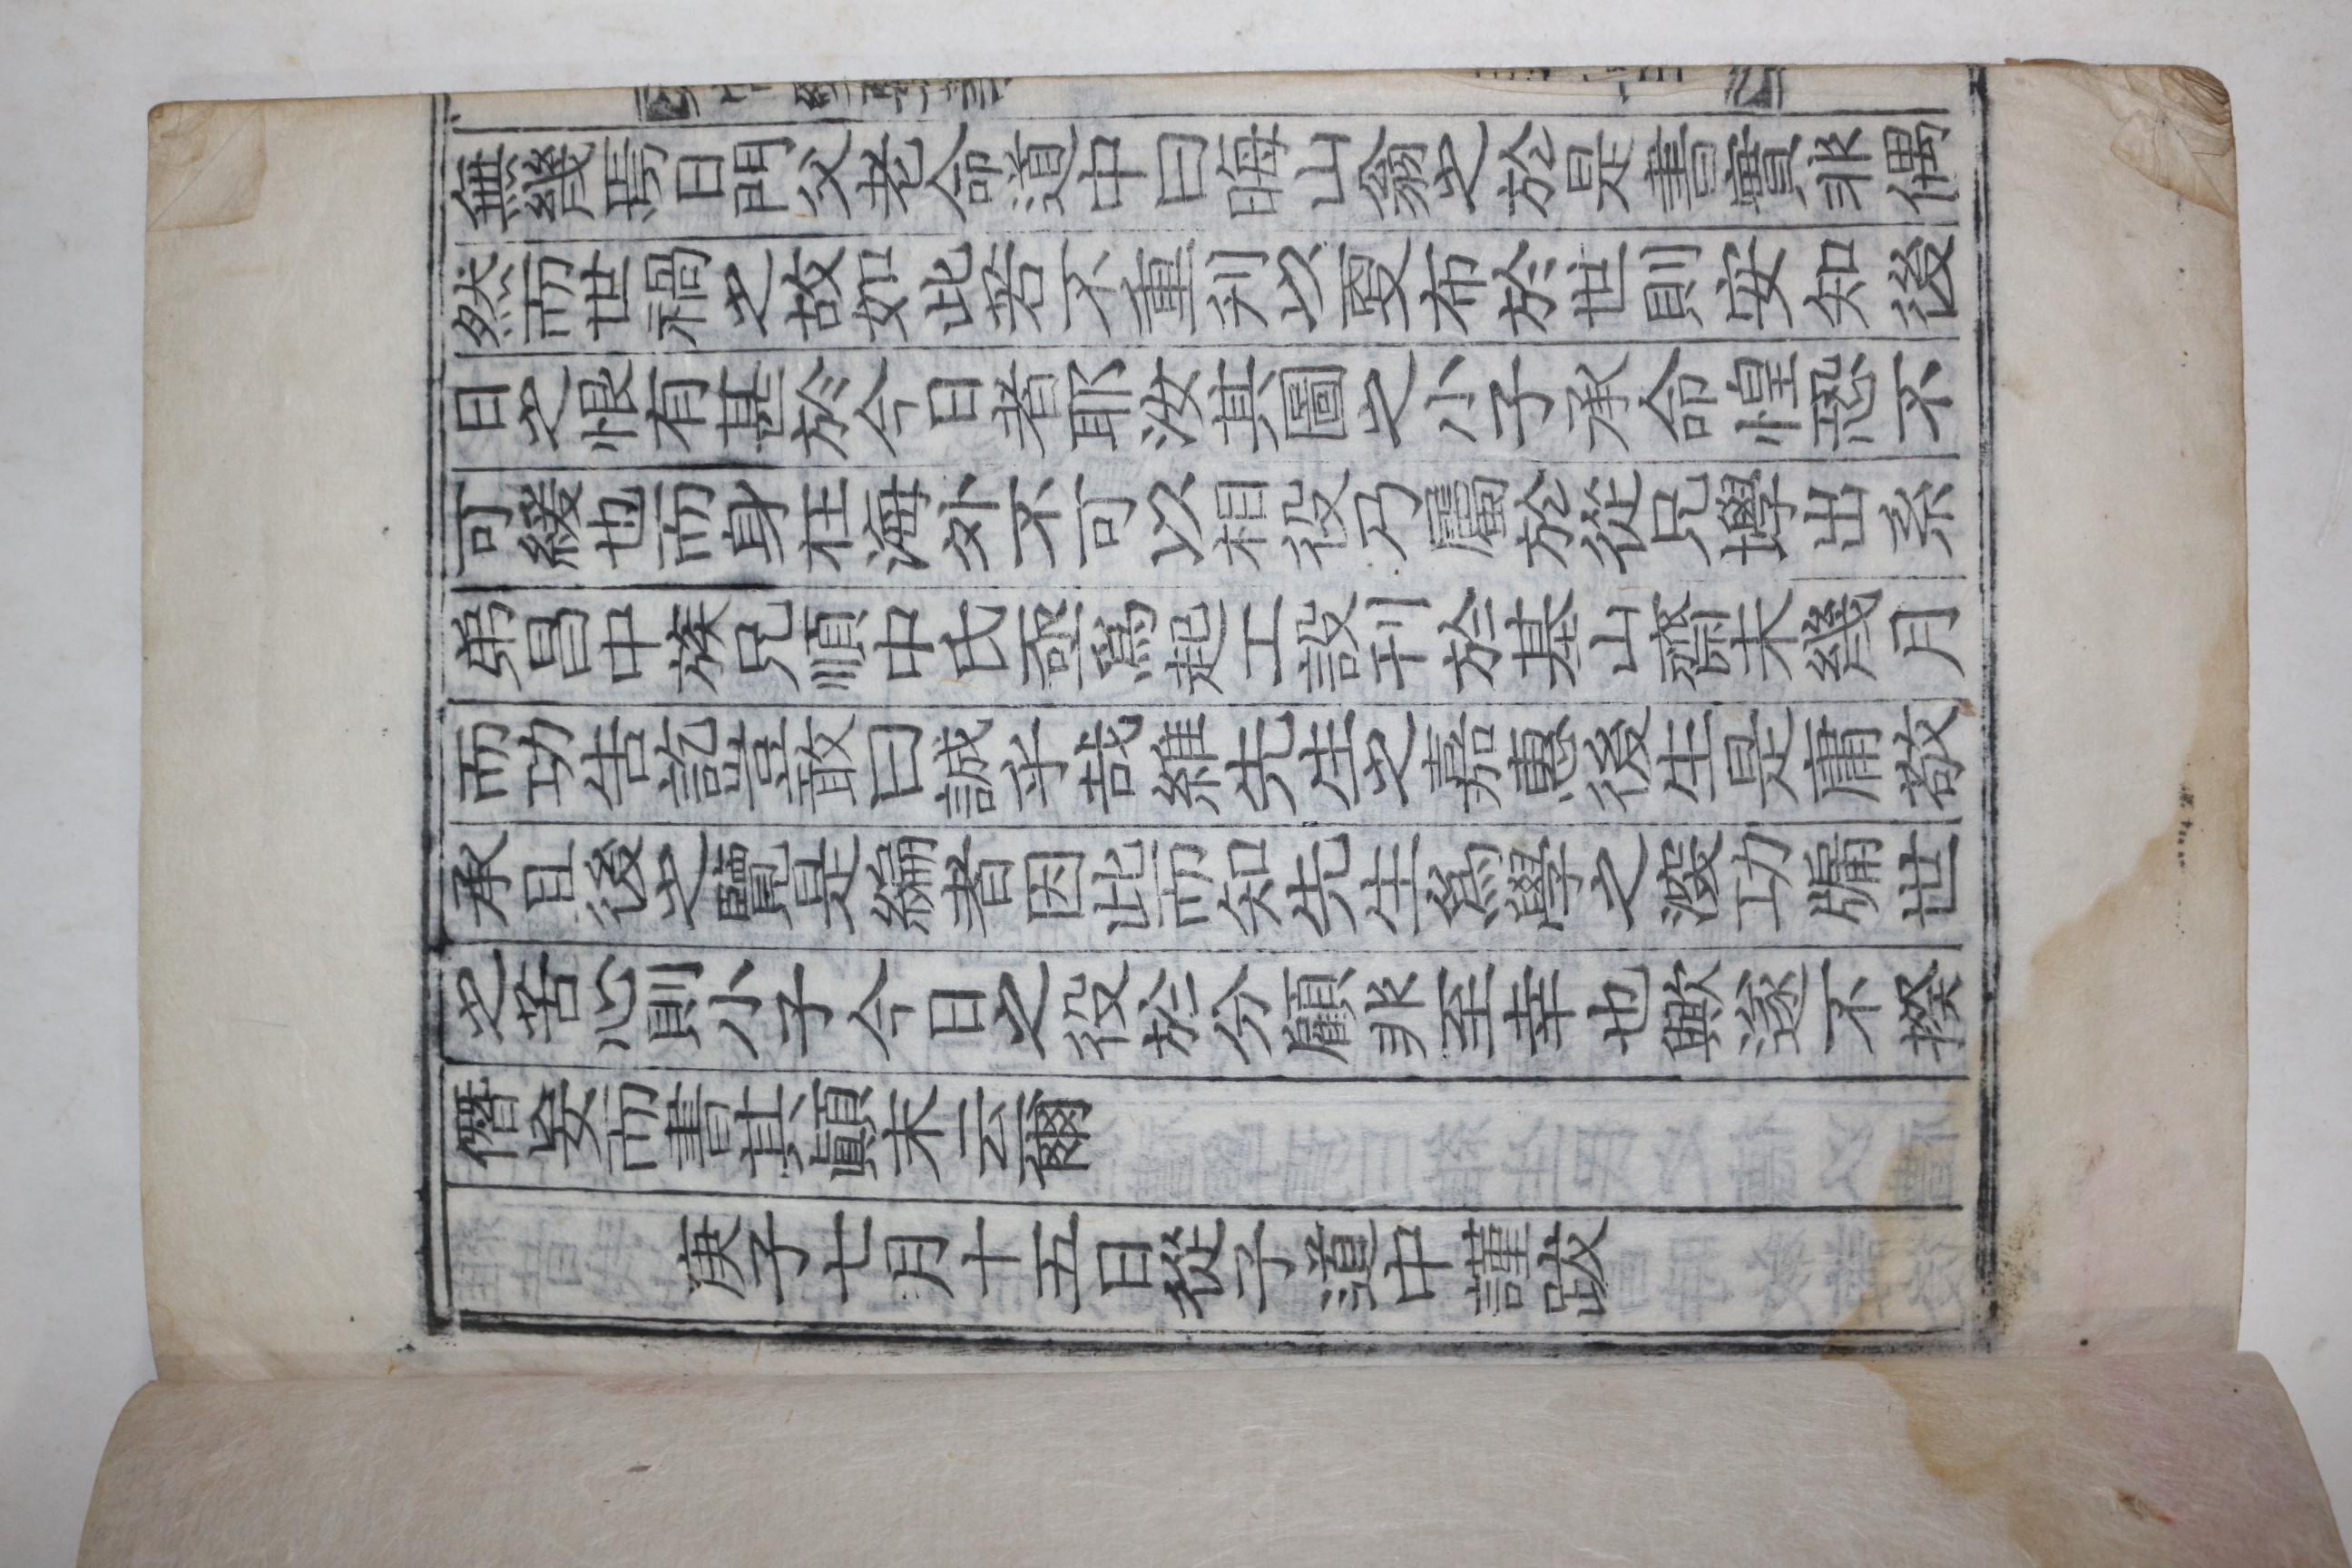 無幾焉日門父老命道中曰晦山翁之於是書實非偶
然而世禍之故如此若不重刋以叓布於世則安知後
日之恨有甚於今日者耶汝其圖之小子承命惶恐不
可緩也而身在海外不可以相役乃屬於從兄壆出系
弟昌中族兄順中氏亟爲起工設刊於基山齋未幾月
而功告訖豈敢曰誠乎哉維先生之嘉惠後生是庸敬
承且後之覽是編者因此而知先生爲學之深功牖世
之苦心則小子今日之役於分顧非至幸也歟遂不揆
僭妄而書其顚末云爾
庚子七月十五日從子道中謹跋